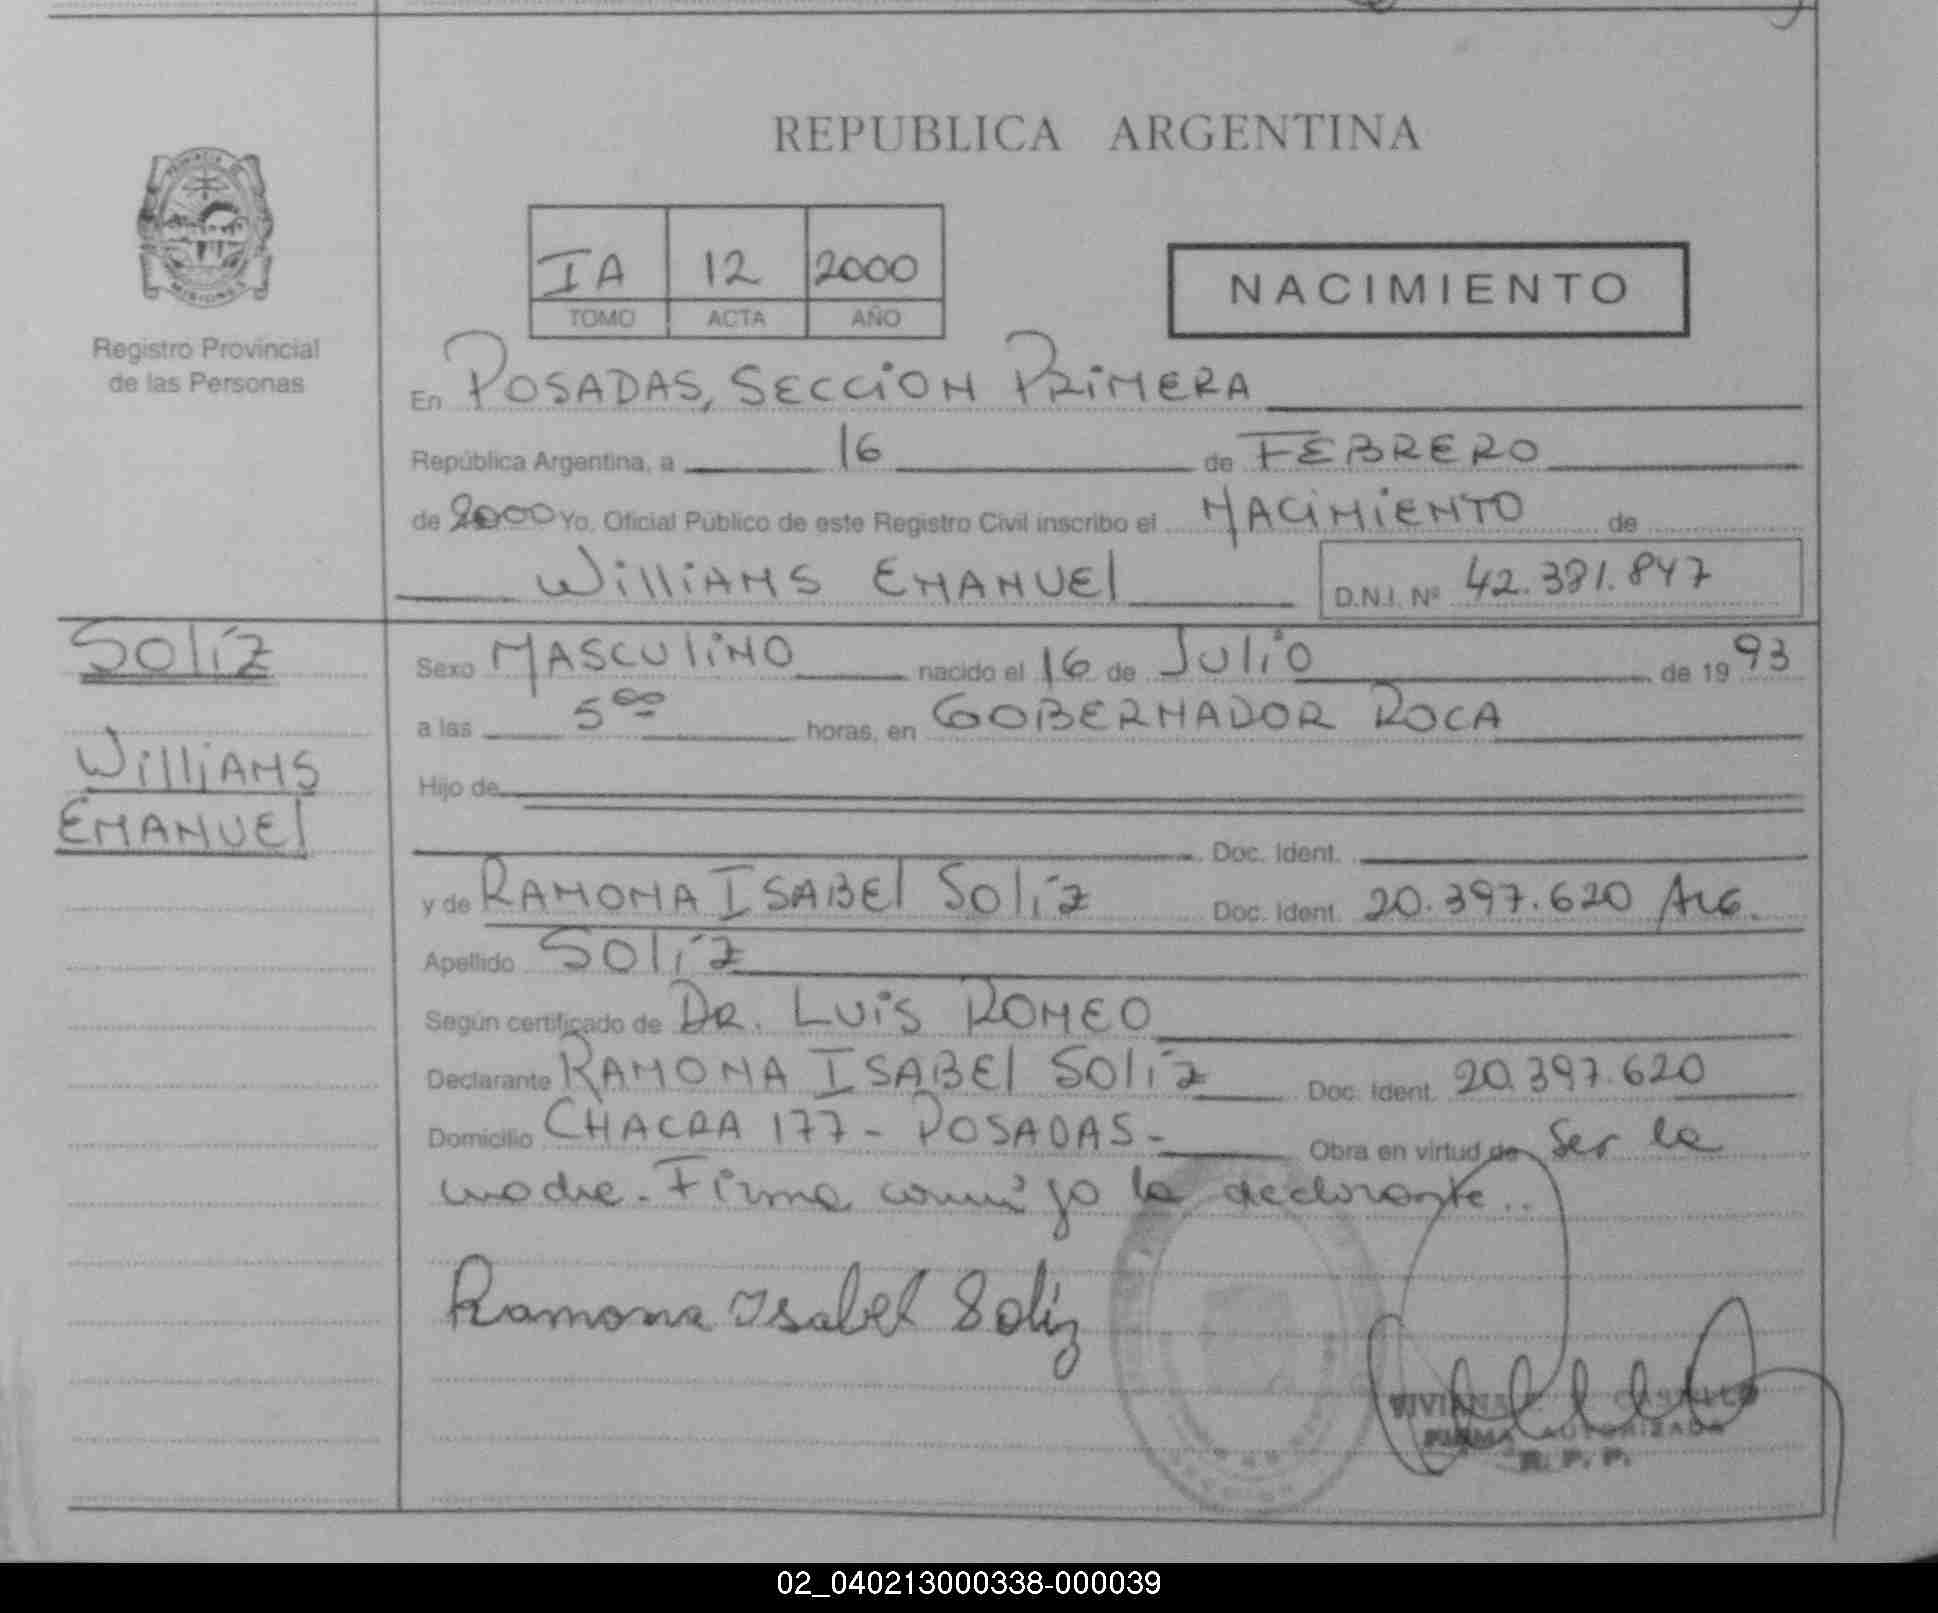 REPUBLICA ARGENTINA
PROVINCIA
MISIONES
Registro Provincial
de las Personas
IA 12 2000
TOMO ACTA AÑO
NACIMIENTO
En POSADAS, SECCION PRIMERA
República Argentina, a 16 de FEBRERO
de 2000 Yo, Oficial Público de este Registro Civil inscribo el NACIMIENTO de
WILLIAMS EMANUEL D.N.I. Nº 42.381.847
SOLÍZ
WILLIAMS
EMANUEL
Sexo MASCULINO nacido el 16 de JULIO de 1993
a las 5⁰⁰ horas, en GOBERNADOR ROCA
Hijo de
Doc. Ident.
y de RAMONA ISABEL SOLÍZ Doc. Ident. 20.397.620 ARG.
Apellido SOLÍZ
Según certificado de DR. LUIS ROMEO
Declarante RAMONA ISABEL SOLÍZ Doc. Ident. 20.397.620
Domicilio CHACRA 177 - POSADAS - Obra en virtud de Ser la
madre. Firma conmigo la declarante..
Ramona Isabel Solíz
VIVIANA
FIRMA AUTORIZADA
R. P. P.
02_040213000338-000039